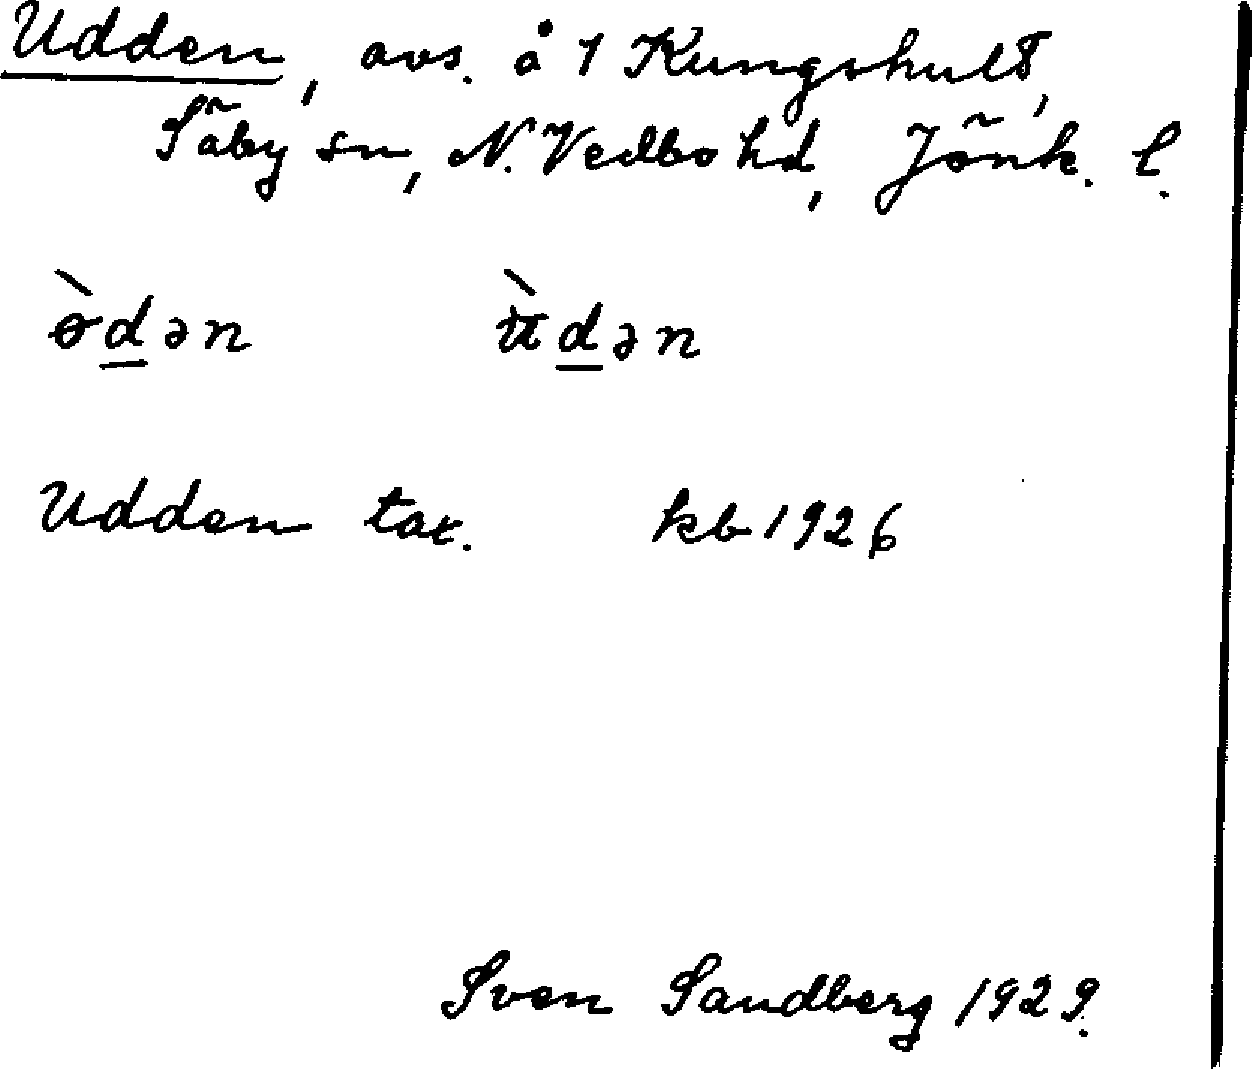 Udden, avs. å 1 Kungshult,
Säby sn, N. Vedbo hd, Jönk. l.
ɵ̀dən ʉ̀dən
Udden tax. kb 1926
Sven Sandberg 1929.